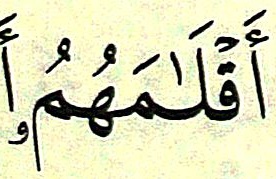 أَقْلَٰمَهُمُۥ أَ